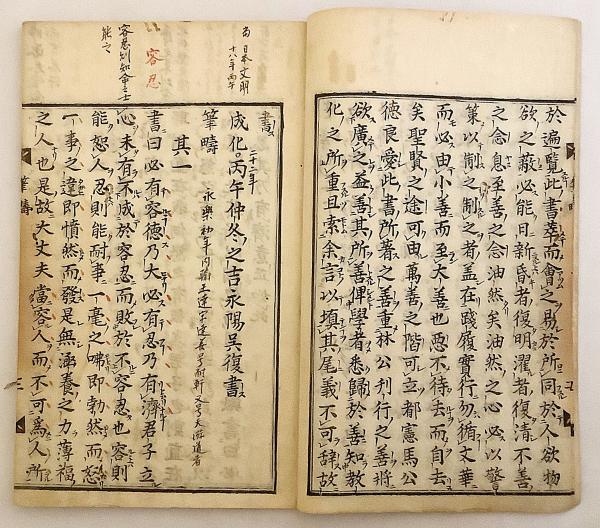 於遍覽此書萃而會之易於所同於人欲物
欲之蔽必能日新昏者復明濯者復清不善
之念息至善之念油然矣油然之心必以警
策以制之制之者盖在踐履實行勿循文華
而必由小善而至大善也惡不待去而自去
矣聖賢之途可由萬善之階可立都憲馬公
德良愛此書所著之善重林公刋行之善將
欲廣之益善其所善俾學者悉歸於善知教
化之所重且索余言以塡其尾義不可辞故
當日本文明
十八年丙午
容忍
容忍則知命之士
能之
書
成化二十二年丙午仲冬之吉永陽吳復書
筆疇
永樂初年內翰王達字達善号耐軒又号天游道者
其一
書曰必有容德乃大必有忍乃有濟君子立
心未有不成於容忍而敗於不容忍也容則
能恕人忍則能耐事一毫之咈即勃然而怒
一事之違即憤然而發是無涵養之力薄福
之人也是故大丈夫當容人而不可爲人所
筆疇
三